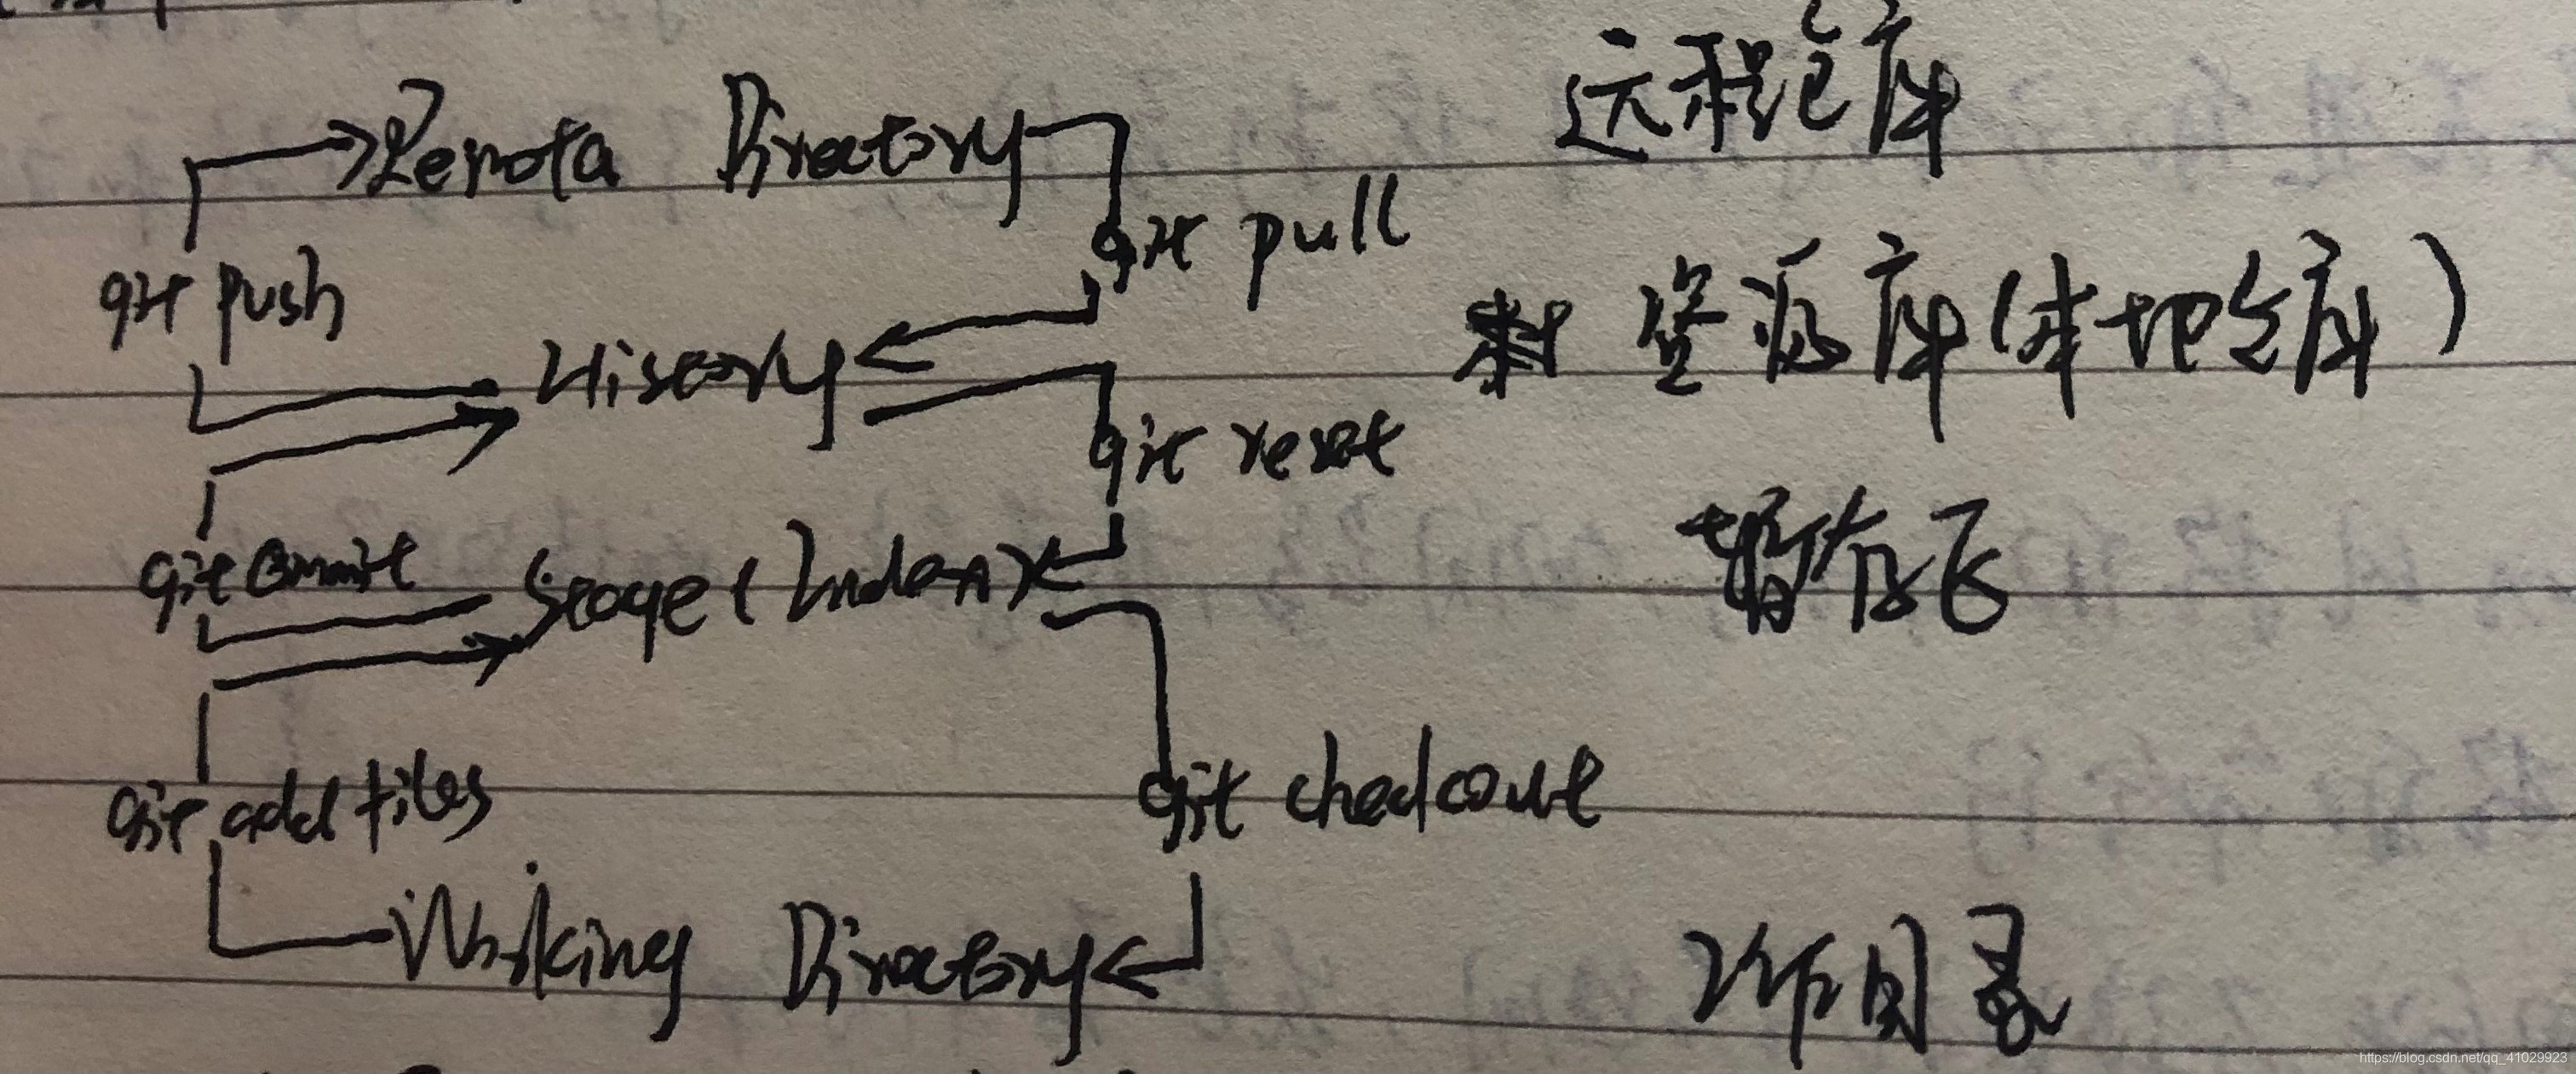 Remota Directory 远程仓库
git pull
git push
History 资源库(本地仓库)
git reset
git commit Stage (Index) 暂存区
git add files git checkout
Working Directory 工作目录
https://blog.csdn.net/qq_41029923